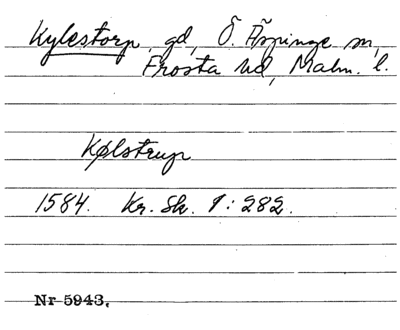 Kylestorp, gd, Ö. Äspinge sn,
Frosta hd, Malm. l.
Kølstrup
1584. Kr. Sk. 1:282.
Nr 5943.